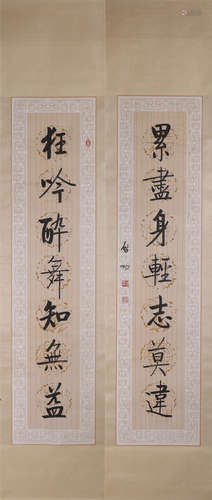 累盡身輕志莫違
啟功
狂吟醉舞知無益